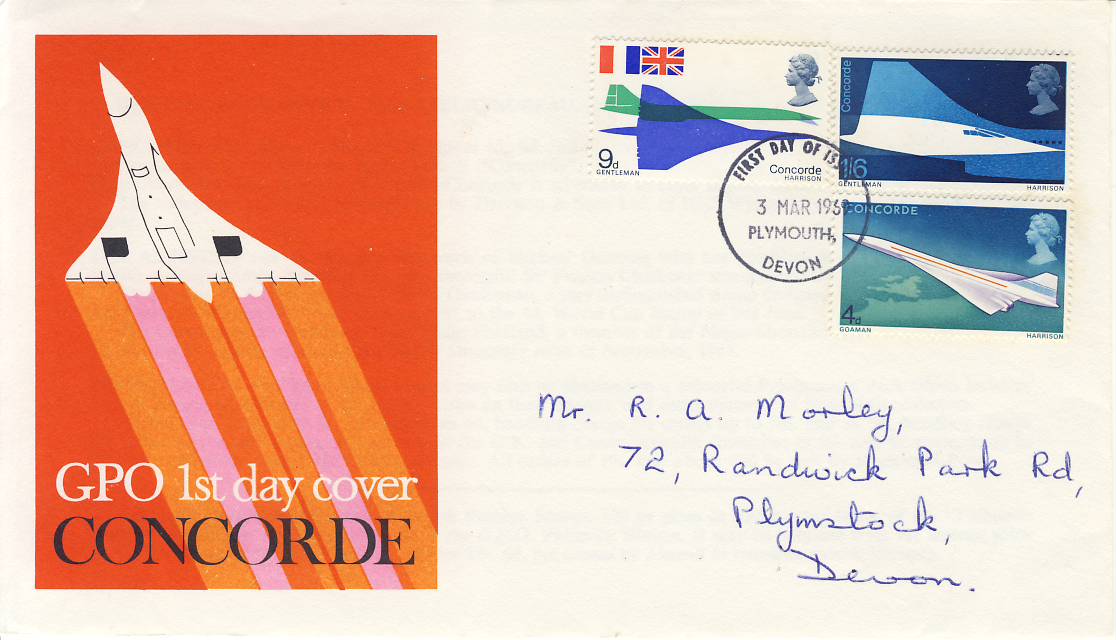 GPO 1st day cover
CONCORDE
9d
GENTLEMAN
Concorde
HARRISON
Concorde
1/6
GENTLEMAN
HARRISON
CONCORDE
4d
GOAMAN
HARRISON
FIRST DAY OF ISS
3 MAR 1969
PLYMOUTH,
DEVON
Mr. R. A. Morley,
72, Randwick Park Rd,
Plymstock,
Devon.